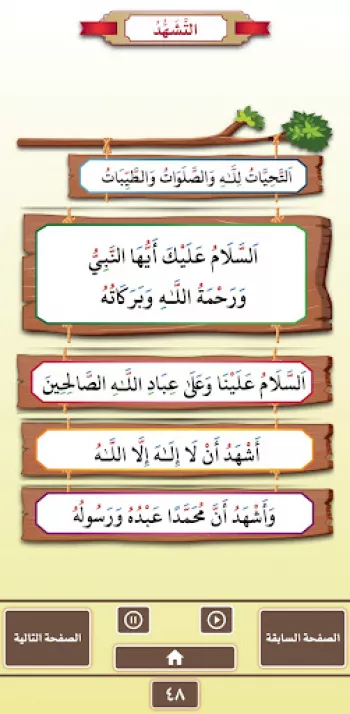 التَّشَهُّدُ
اَلتَّحِيَّاتُ لِلَّـهِ وَالصَّلَوَاتُ وَالطَّيِّبَاتُ
اَلسَّلَامُ عَلَيْكَ أَيُّهَا النَّبِيُّ
وَرَحْمَةُ اللَّـهِ وَبَرَكَاتُهُ
اَلسَّلَامُ عَلَيْنَا وَعَلَىٰ عِبَادِ اللَّـهِ الصَّالِحِينَ
أَشْهَدُ أَنْ لَا إِلَـٰهَ إِلَّا اللَّـهُ
وَأَشْهَدُ أَنَّ مُحَمَّدًا عَبْدُهُ وَرَسُولُهُ
الصفحة السابقة
الصفحة التالية
٤٨